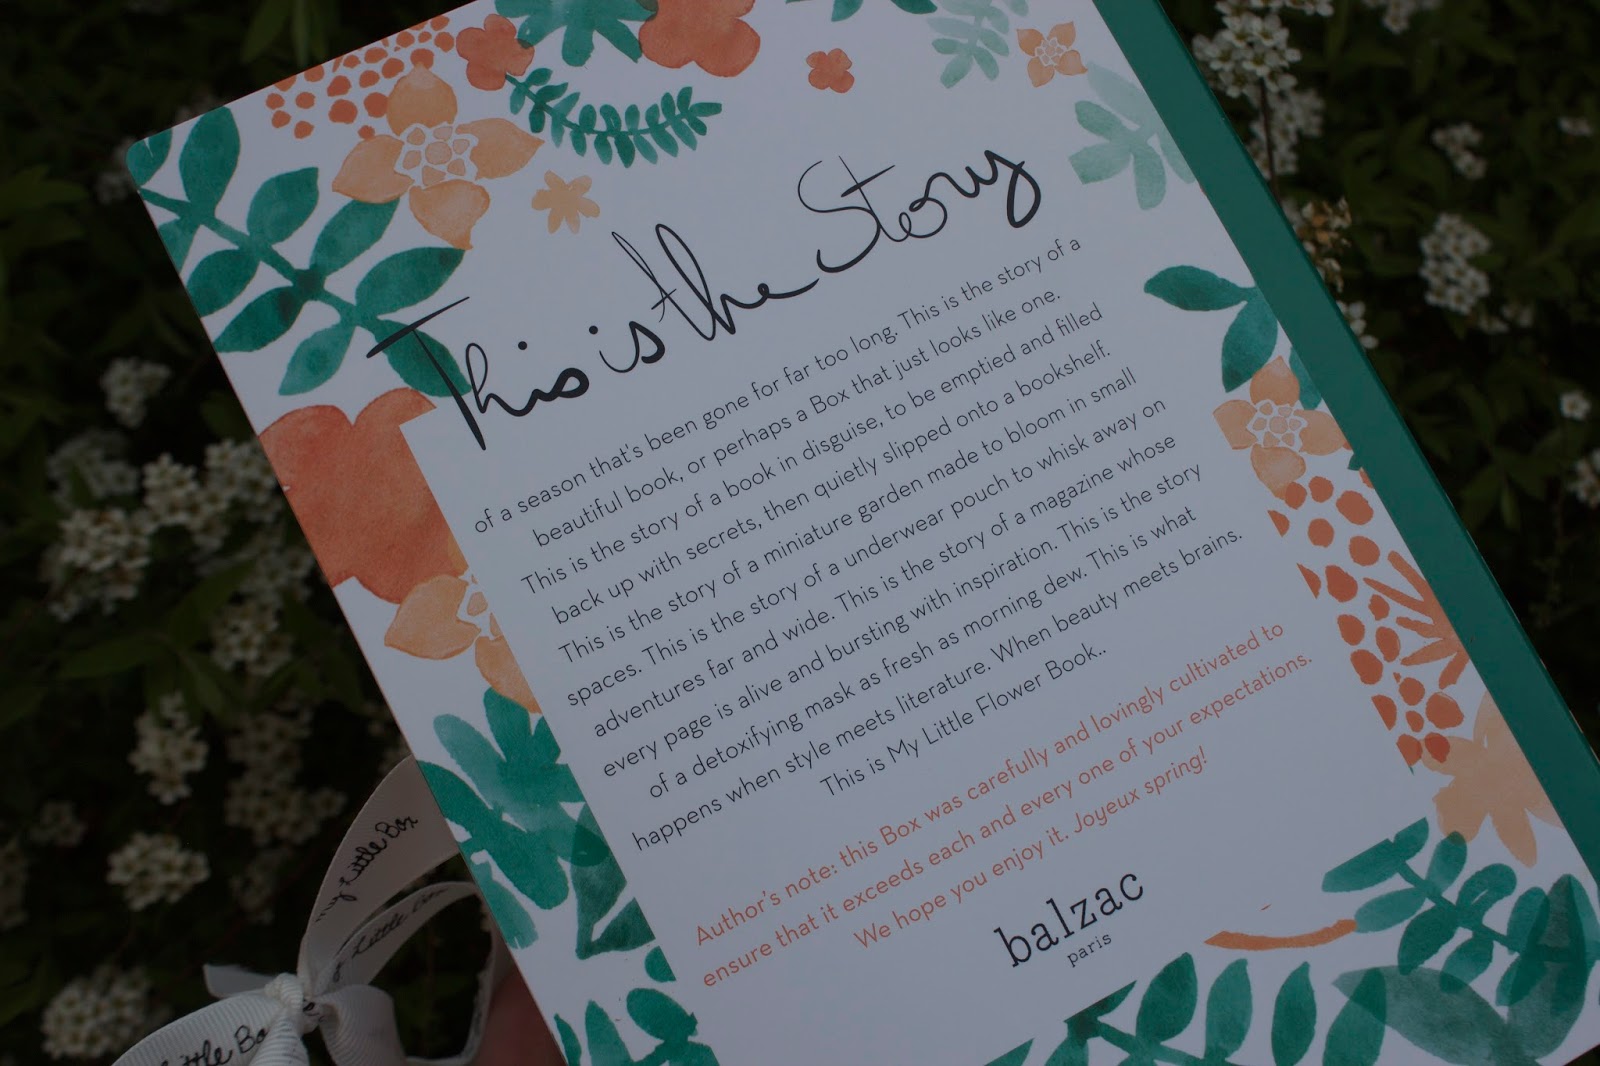 This is the Story
of a season that's been gone for far too long. This is the story of a
beautiful book, or perhaps a Box that just looks like one.
This is the story of a book in disguise, to be emptied and filled
back up with secrets, then quietly slipped onto a bookshelf.
This is the story of a miniature garden made to bloom in small
spaces. This is the story of a underwear pouch to whisk away on
adventures far and wide. This is the story of a magazine whose
every page is alive and bursting with inspiration. This is the story
of a detoxifying mask as fresh as morning dew. This is what
happens when style meets literature. When beauty meets brains.
This is My Little Flower Book..
Author's note: this Box was carefully and lovingly cultivated to
ensure that it exceeds each and every one of your expectations.
We hope you enjoy it. Joyeux spring!
balzac
paris
my Little Box
Little Box
Little Bo